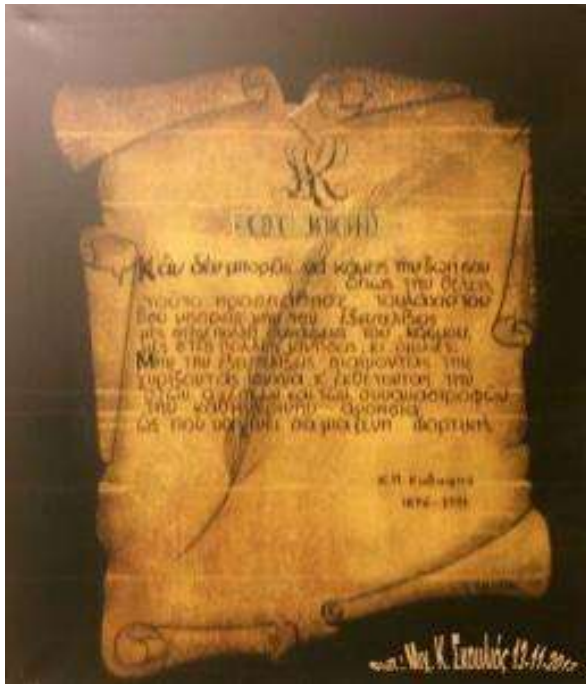 ΟΣΟ ΜΠΟΡΕΙΣ
Κι άν δέν μπορείς νά κάμεις την ζωή σου
όπως την θέλεις
τούτο προσπάθησε τουλάχιστον
όσο μπορείς μην την εξευτελίζεις
μές στην πολλή συνάφεια του κόσμου,
μές στες πολλές κινήσεις κι ομιλίες.
Μην την εξευτελίζεις πιαίνοντάς την
γυρίζοντας συχνά κ' εκθέτοντάς την
στων σχέσεων και των συναναστροφών
την καθημερινήν ανοησία,
ώς που να γίνει σα μια ξένη φορτική.
Κ.Π. Καβάφης
Φωτ.: Μιχ. Κ. Σκουλιός 13-11-2017